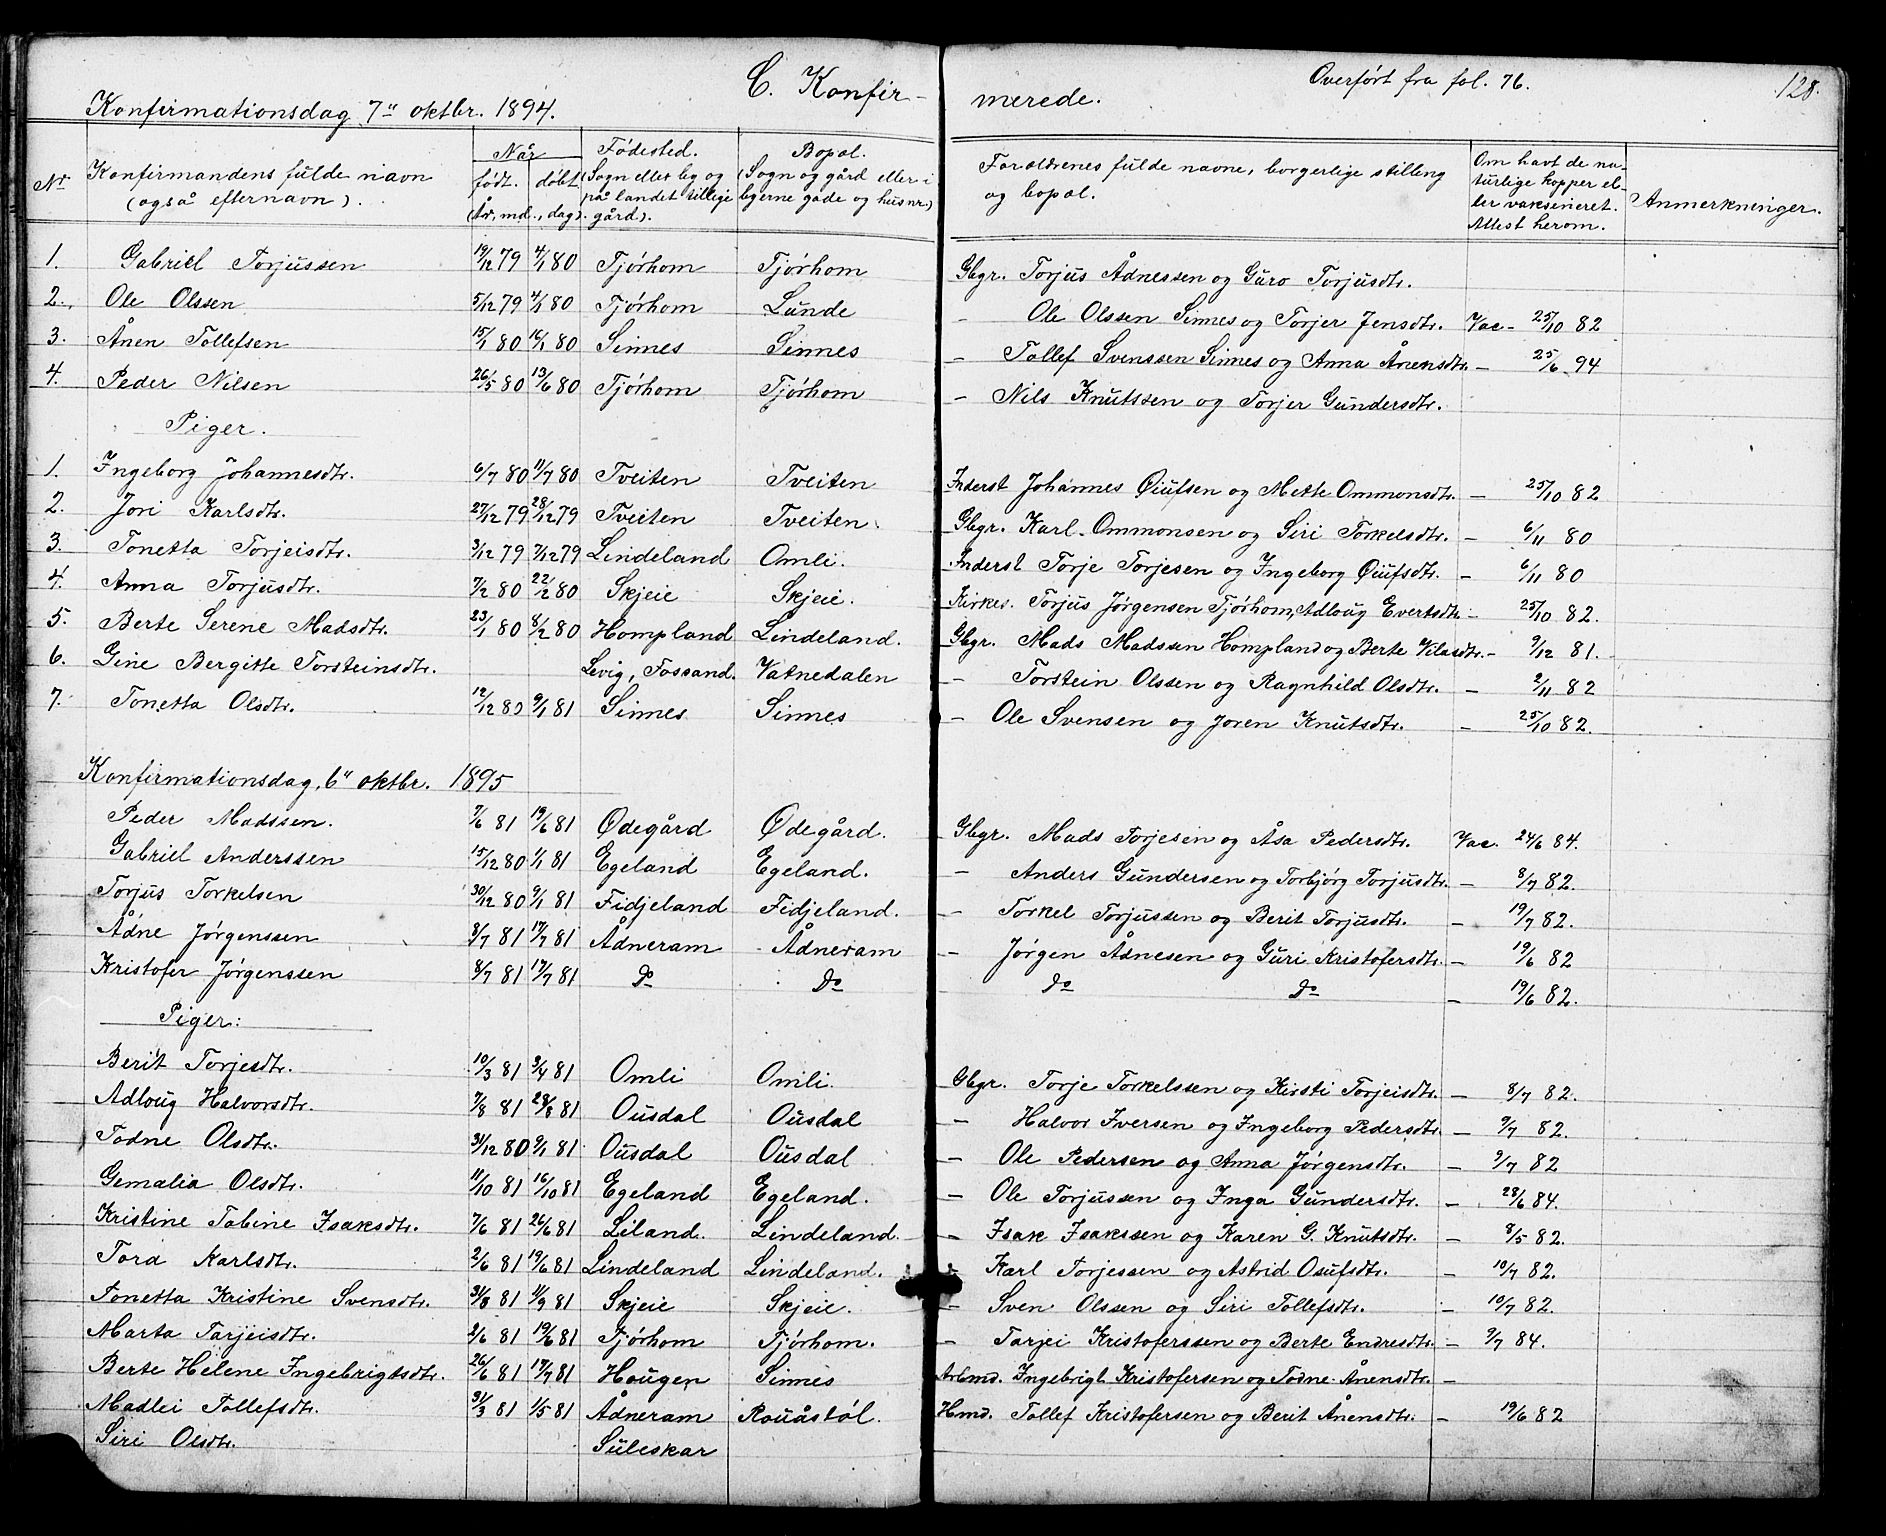 C. Konfir-
merede.
Overført fra fol. 76.
128.
Konfirmationsdag 7" oktbr. 1894.
Nr
Konfirmandens fulde navn
(også efternavn).
Når
født. døbt
(År, md., dag).
Fødested.
(Sogn eller by og
på landet tillige
gård).
Bopæl.
(Sogn og gård eller i
byerne gade og husnr.)
Forældrenes fulde navne, borgerlige stilling
og bopæl.
Om havt de na-
turlige kopper el-
ler vaksineret.
Attest herom.
Anmerkninger.
1. Gabriel Torjussen 19/12 79 4/1 80 Tjørhom Tjørhom Gbgr. Torjus Ådnessen og Guro Torjusdtr.
2. Ole Olssen 5/12 79 4/1 80 Tjørhom Lunde - Ole Olssen Sinnes og Torjer Jensdtr. Vac - 25/10 82
3. Ånen Tollefsen 15/1 80 16/1 80 Sinnes Sinnes - Tollef Svenssen Sinnes og Anna Ånensdtr. - 25/6 94
4. Peder Nilsen 26/5 80 13/6 80 Tjørhom Tjørhom - Nils Knutssen og Torjer Gundersdtr.
Piger.
1. Ingeborg Johannesdtr. 6/7 80 11/7 80 Tveiten Tveiten Inderst Johannes Øiufsen og Mette Ommonsdtr. - 25/10 82
2. Jori Karlsdtr. 27/12 79 28/12 79 Tveiten Tveiten Gbgr. Karl Ommonsen og Siri Torkelsdtr. - 6/11 80
3. Tonetta Torjeisdtr. 3/12 79 7/12 79 Lindeland Omli. Inderst Torje Torjesen og Ingeborg Øiufsdtr. - 6/11 80
4. Anna Torjusdtr. 7/2 80 22/2 80 Skjeie Skjeie. Kirkes. Torjus Jørgensen Tjørhom, Adloug Evertsdtr. - 25/10 82.
5. Berte Serene Madsdtr. 23/1 80 8/2 80 Hompland Lindeland. Gbgr. Mads Madssen Hompland og Berte Vilasdtr. - 9/12 81.
6. Gine Bergitte Torsteinsdtr. Levig, Fossand. Vatnedalen - Torstein Olssen og Ragnhild Olsdtr. - 2/11 82
7. Tonetta Olsdtr. 12/12 80 9/1 81 Sinnes Sinnes - Ole Svensen og Joren Knutsdtr. - 25/10 82.
Konfirmationsdag, 6" oktbr. 1895
Peder Madssen. 7/6 81 19/6 81 Ødegård Ødegård. Gbgr. Mads Torjesen og Åsa Pedersdtr. Vac. 24/6 84.
Gabriel Anderssen 15/12 80 1/1 81 Egeland Egeland. - Anders Gundersen og Torbjørg Torjusdtr. - 8/7 82.
Torjus Torkelsen 30/12 80 9/1 81 Fidjeland Fidjeland. - Torkel Torjussen og Berit Torjusdtr. - 19/7 82.
Ådne Jørgenssen 3/7 81 17/7 81 Ådneram Ådneram - Jørgen Ådnesen og Guri Kristofersdtr. - 19/6 82
Kristofer Jørgenssen 8/7 81 17/7 81 do do do do - 19/6 82.
Piger:
Berit Torjesdtr. 10/3 81 3/4 81 Omli Omli. Gbgr. Torje Torkelssen og Kirsti Torjeisdtr. - 8/7 82.
Adloug Halvorsdtr. 7/8 81 28/8 81 Ousdal Ousdal - Halvor Iversen og Ingeborg Pedersdtr. - 9/7 82.
Todne Olsdtr. 31/12 80 9/1 81 Ousdal Ousdal - Ole Pedersen og Anna Jørgensdtr. - 9/7 82
Gemalia Olsdtr. 11/10 81 16/10 81 Egeland Egeland. - Ole Torjussen og Inga Gundersdtr. - 28/6 84.
Kristine Tobine Isaksdtr. 7/6 81 26/6 81 Liland. Lindeland. - Isak Isakssen og Karen G. Knutsdtr. - 8/5 82.
Tora Karlsdtr. 2/6 81 19/6 81 Lindeland Lindeland. - Karl Torjessen og Astrid Osufsdtr. - 10/7 82.
Tonetta Kristine Svensdtr. 31/8 81 1/9 81 Skjeie Skjeie. - Sven Olssen og Siri Tollefsdtr. - 10/7 82.
Marta Tarjeisdtr. 2/6 81 19/6 81 Tjørhom Tjørhom. - Tarjei Kristoferssen og Berte Endresdtr. - 9/7 84.
Berte Helene Ingebrigtsdtr. 26/6 81 17/7 81 Hougen Sinnes Arbmd. Ingebrigt Kristofersen og Todne Ånensdtr. -
Madlei Tollefsdtr. 31/3 81 1/5 81 Ådneram Rouåstøl. Hmd. Tollef Kristofersen og Berit Ånensdtr. - 19/6 82
Siri Olsdtr. Suleskar